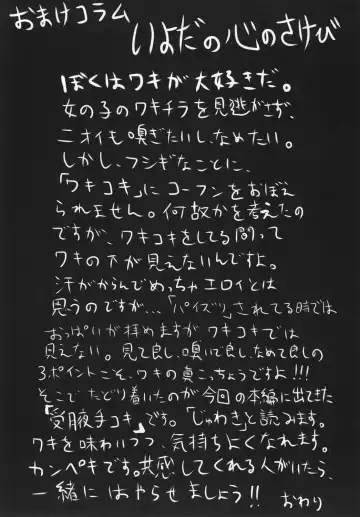 おまけコラム
いよだの心のさけび
ぼくはワキが大好きだ。
女の子のワキチラを見逃がさず、
ニオイも嗅ぎたいし、なめたい。
しかし、フシギなことに、
「ワキコキ」にコーフンをおぼえ
られません。何故かを考えたの
ですが、ワキコキをしてる間って
ワキの下が見えないんですよ。
汗がからんでめっちゃエロイとは
思うのですが…「パイズリ」されてる時では
おっぱいが拝めますがワキコキでは
見えない。見て良し、嗅いで良し、なめて良しの
3ポイントこそ、ワキの真こっちょうですよ!!!
そこでたどり着いたのが今回の本編に出てきた
「受腋手コキ」です。「じゅわき」と読みます。
ワキを味わいつつ、気持ちよくなれます。
カンペキです。共感してくれる人がいたら、
一緒にはやらせましょう!! おわり